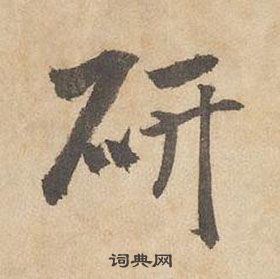 研
词典网